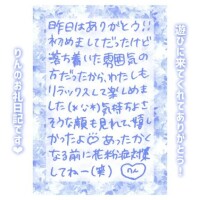 遊びに来てくれてありがとう!
昨日はありがとう!!
初めましてだったけど
落ち着いた雰囲気の
方だったから、わたしも
リラックスして楽しめま
した(≧▽≦) 気持ちよさ
そうな顔も見れて、嬉し
かったよ♡ あったかく
なる前に花粉症対策
してねー(笑)
りん
りんのお礼日記です♥